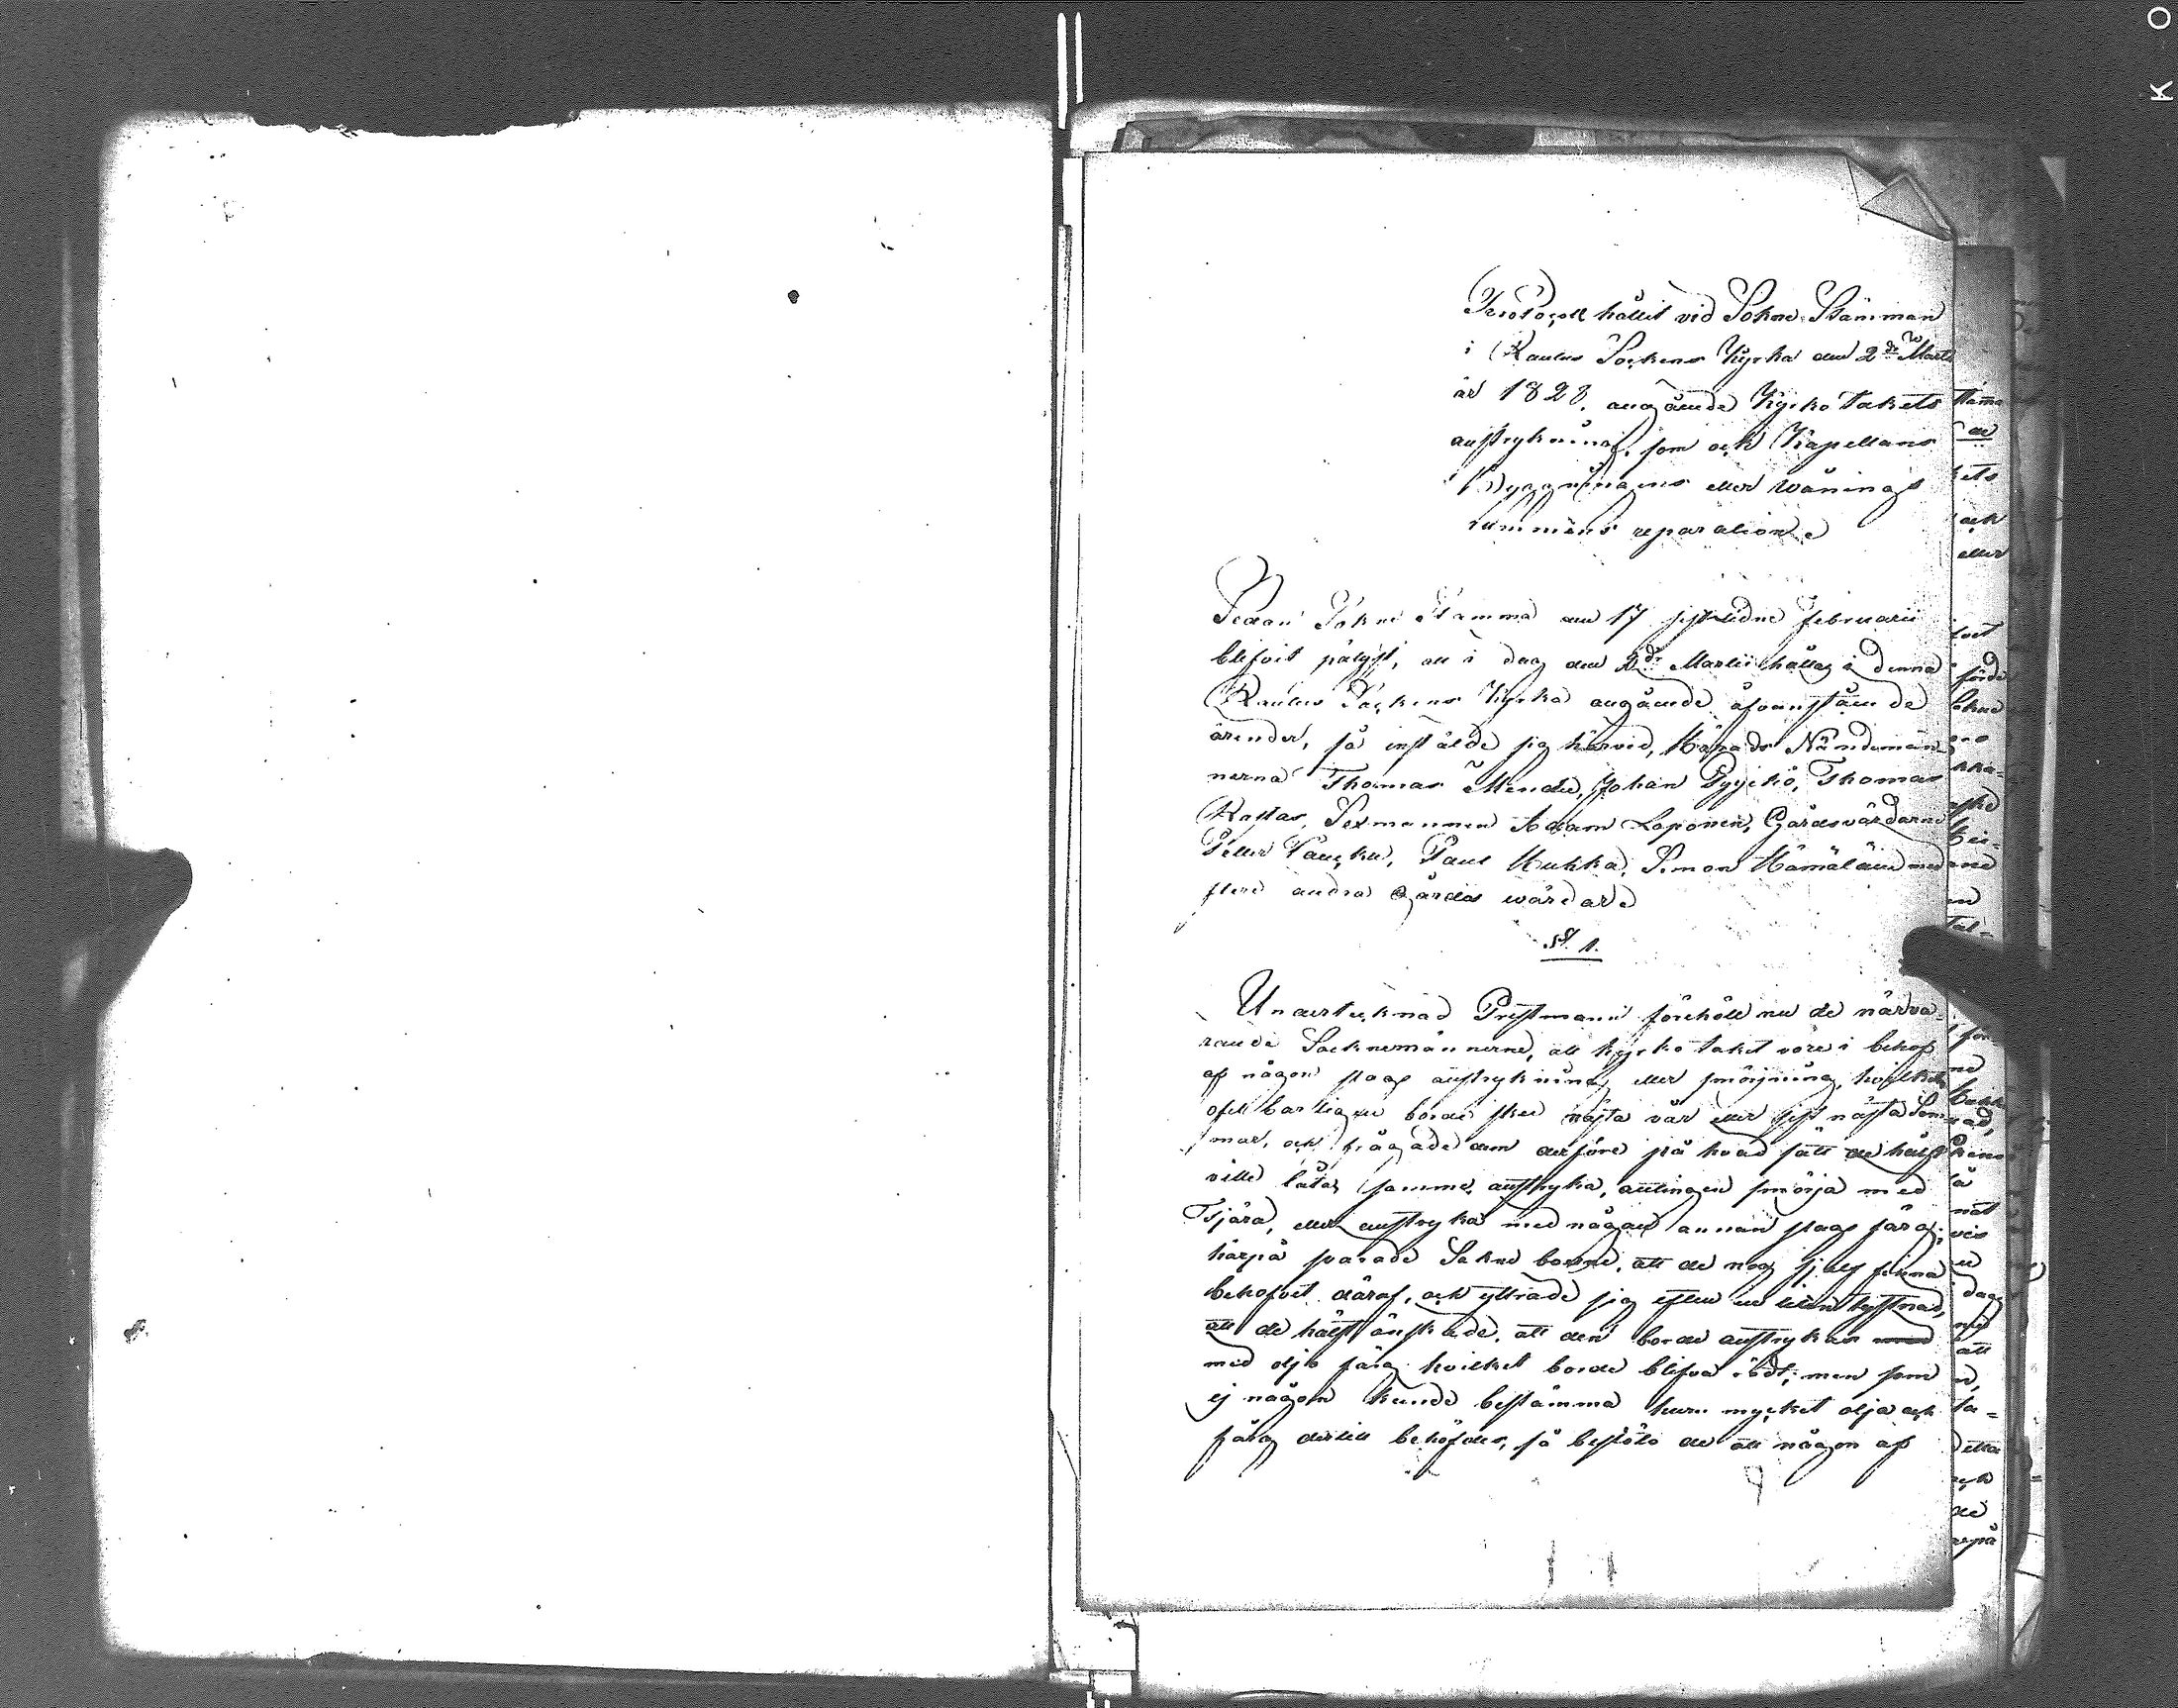 K O
Protocoll hållit vid Sokne Stämman
i Rautus Sockens Kyrka den 2de Martii
år 1828. angående Kyrko takets
anstrykning, som ock Kapellans
Byggningens eller wånings
rummens reparation
Sedan Sokne Stamma den 17 sistledne Februarii
blifvit pålyst, att i dag den 2de Martii hållas i denna
Rautus Sockens Kyrka angående åfvanstående
ärender, så instälde sig härvid, Härads Nämdemän
nerna Thomas Mendu, Johan Pyykö, Thomas
Rastas, Sexmannen Adam Loponen, Gårdsvärdarne
Petter Paucku, Paul Kukka, Simon Hämäläin med
flere andra Gårds wärdare
§. 1.
Undertecknad Prestmann förehöll nu de närva-
rande Socknemännerne, att kyrko taket vore i behof
af någon slags anstrykning eller smörjning, hvilket
ofelbarligen borde ske nästa vår eller sist nästa Som
mar, ock frågade dem derföre på hvad sätt de hälst
ville låta samma anstryka, antingen smörja med
Tjära, eller anstryka med någon annan slags färg;
härpå svarade Sokne boerne, att de nog sjelf finna
behofvet däraf, ock yttrade sig efter en liten tystnad,
att de hälst önskade, att den borde anstrykas
med olje färg hvilket borde blifva rödt; men som
ej någon kunde bestämma huru mycket olja ock
färg dertill behöfdes, så beslöto de att någon af